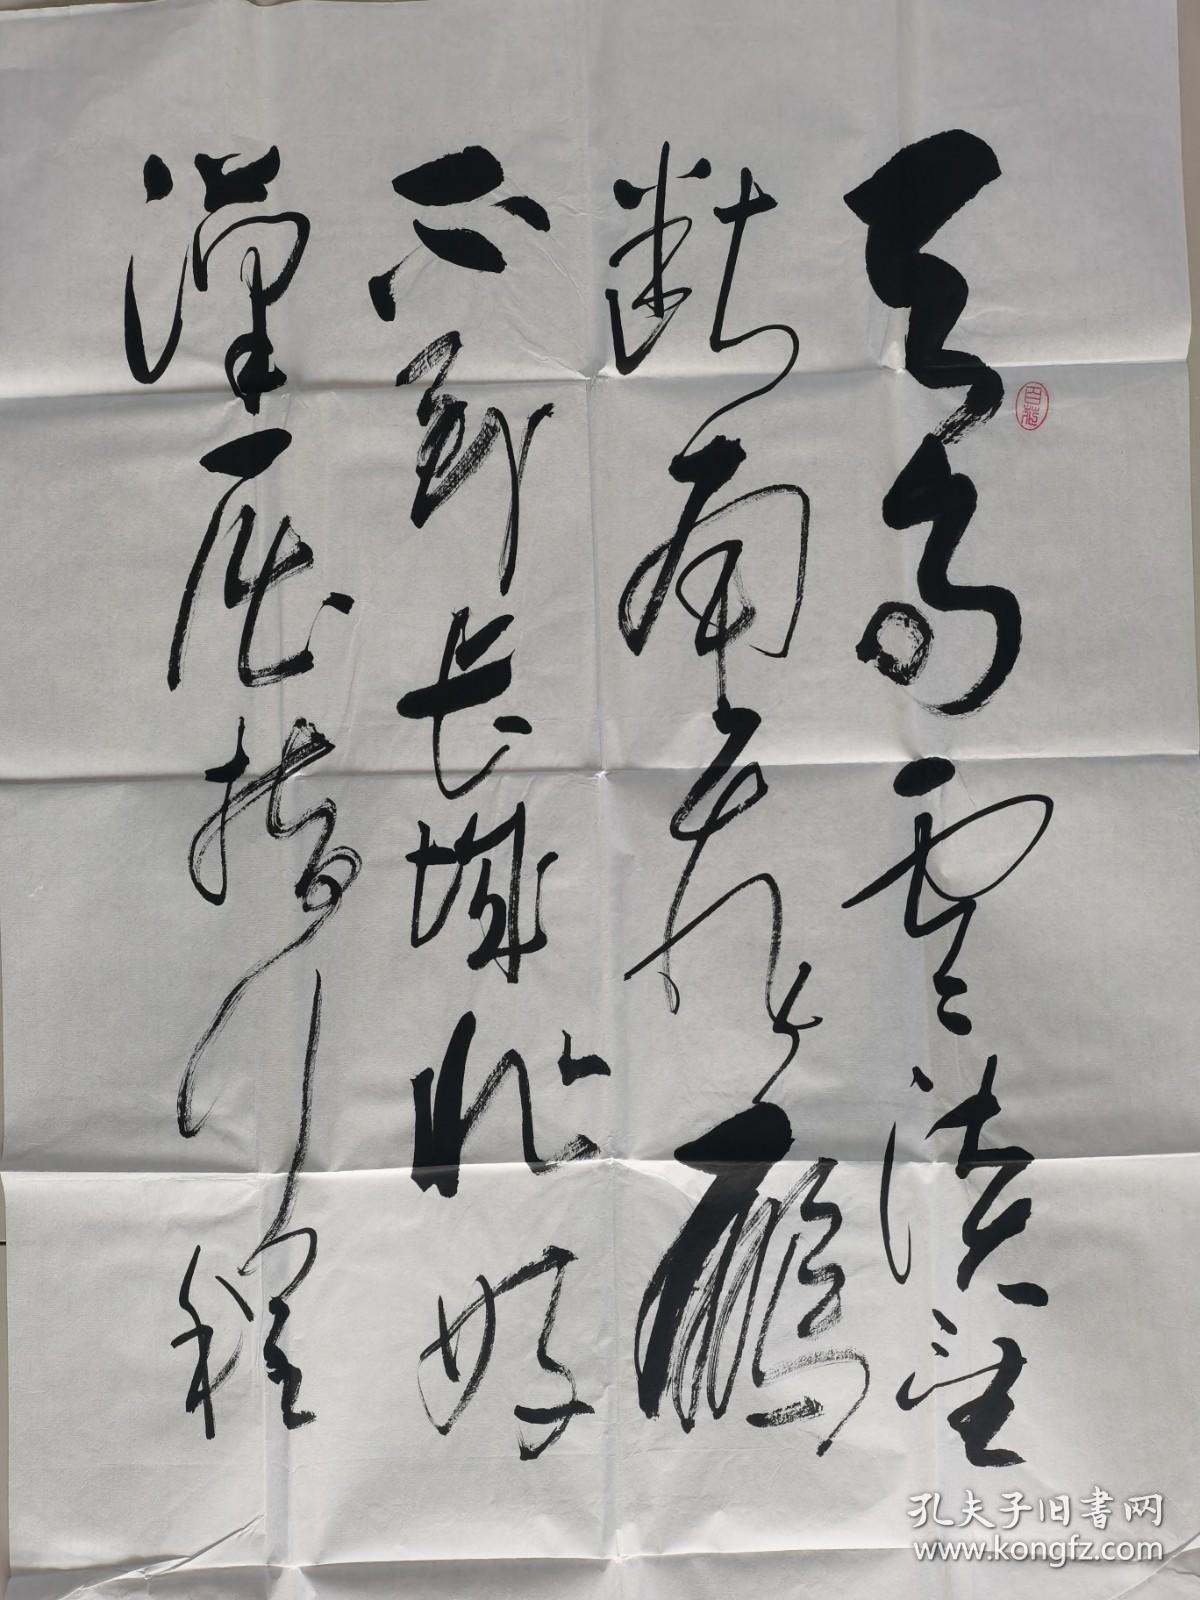 天高雲淡望
斷南飛雁
不到長城非好
漢屈指行程
孔夫子旧書网
www.kongfz.com